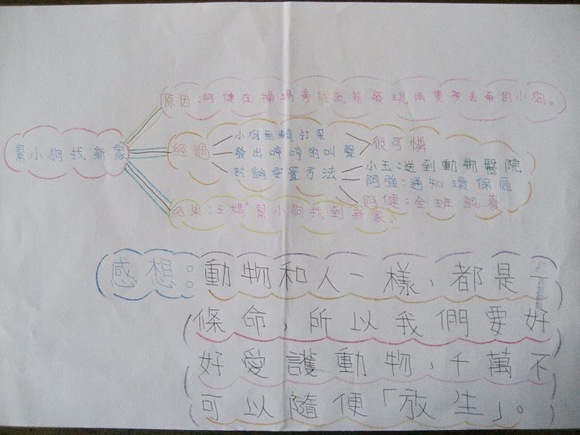 原因:阿健在操場旁發現兩隻被丟棄的小狗。
幫小狗找新家
經過
小狗無精打采
發出哼哼的叫聲
討論安置方法
很可憐
小玉:送到動物醫院
阿強:通知環保局
阿健:全班認養
結果:王媽幫小狗找到新家。
感想:動物和人一樣,都是一
條命,所以我們要好
好愛護動物,千萬不
可以隨便「放生」。